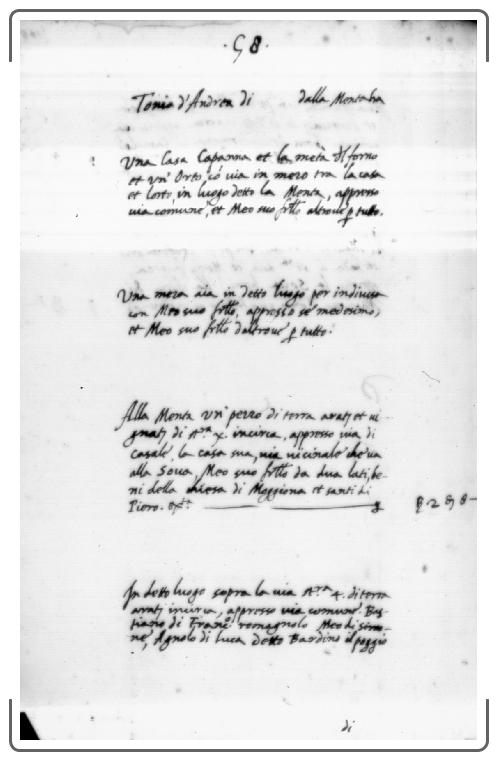 ·58·
Tonio d'Andrea di dalla Menta
Una Casa Capanna et la metà dl forno
et un' Orto, cō via in mezo tra la casa
et l'orto, in luogo detto la Menta, appresso
via comune, et Meo suo frłło altroue p tutto.
Una meza aia in detto luogo per indiuisa
con Meo suo frłło, appresso sè medesimo,
et Meo suo frłło daltroue p tutto.
Alla Menta un' pezzo di terra arat; et ui
gnat; di incirca, appresso uia di
casale, la casa sua, uia uicinale che ua
alla Soua, Meo suo frłło da dua lati, be-
ni della chiesa di Moggiona et santi di
Piero.
In detto luogo sopra la uia 4. di terra
arat; incirca, appresso uia comune. Bas
tiano di Franc.o romagnolo Meo di simo-
ne, Agnolo di Luca detto Bardino il poggio
di